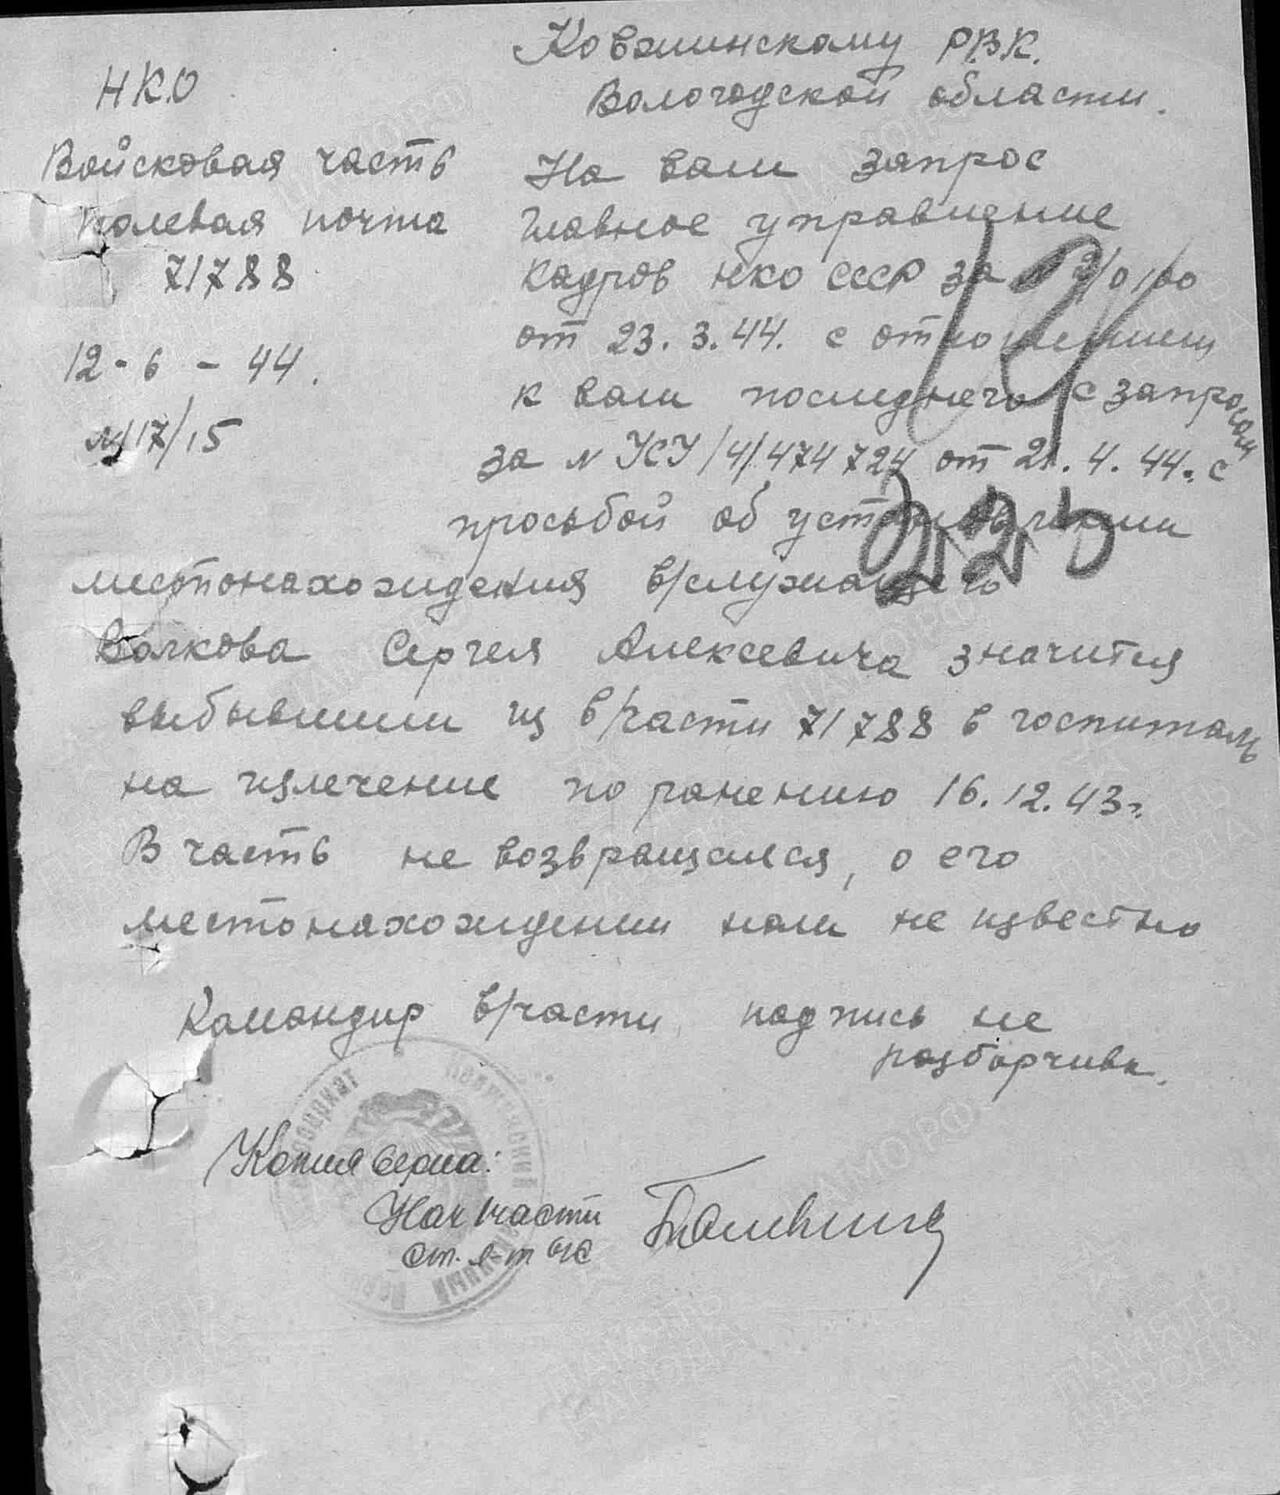 Ковжинскому РВК.
Вологодской области.
НКО
Войсковая часть
полевая почта
71788
12-6-44.
№17/15
На ваш запрос
Главное управление
кадров НКО СССР за
от 23.3.44. с отношением
к вам последнего с запросом
за № УСУ/4/474724 от 21.4.44. с
просьбой об установлении
местонахождения в/служащего
Волкова Сергея Алексеевича значится
выбывшим из в/части 71788 в госпиталь
на излечение по ранению 16.12.43г.
В часть не возвращался, о его
местонахождении нам не известно
Командир в/части подпись не
разборчива.
Копия верна:
Нач 1части
ст. л-т а/с
ПАМЯТЬ
НАРОДА
ПАМО.РФ